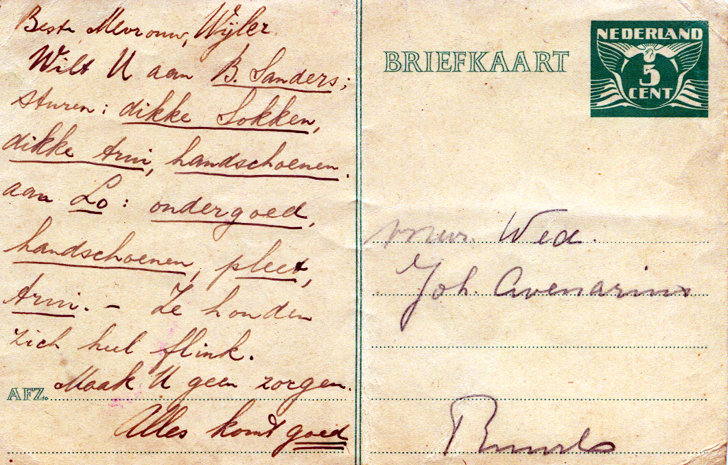 Beste Mevrouw, Wijler.
Wilt U aan B. Sanders;
sturen: dikke Sokken,
dikke trui, handschoenen.
aan Lo: ondergoed,
handschoenen, pleet,
trui. – Ze houden
zich heel flink.
AFZ. Maak U geen zorgen.
Alles komt goed
BRIEFKAART
NEDERLAND
5
CENT
Mevr. Wed.
Joh. Avenarius